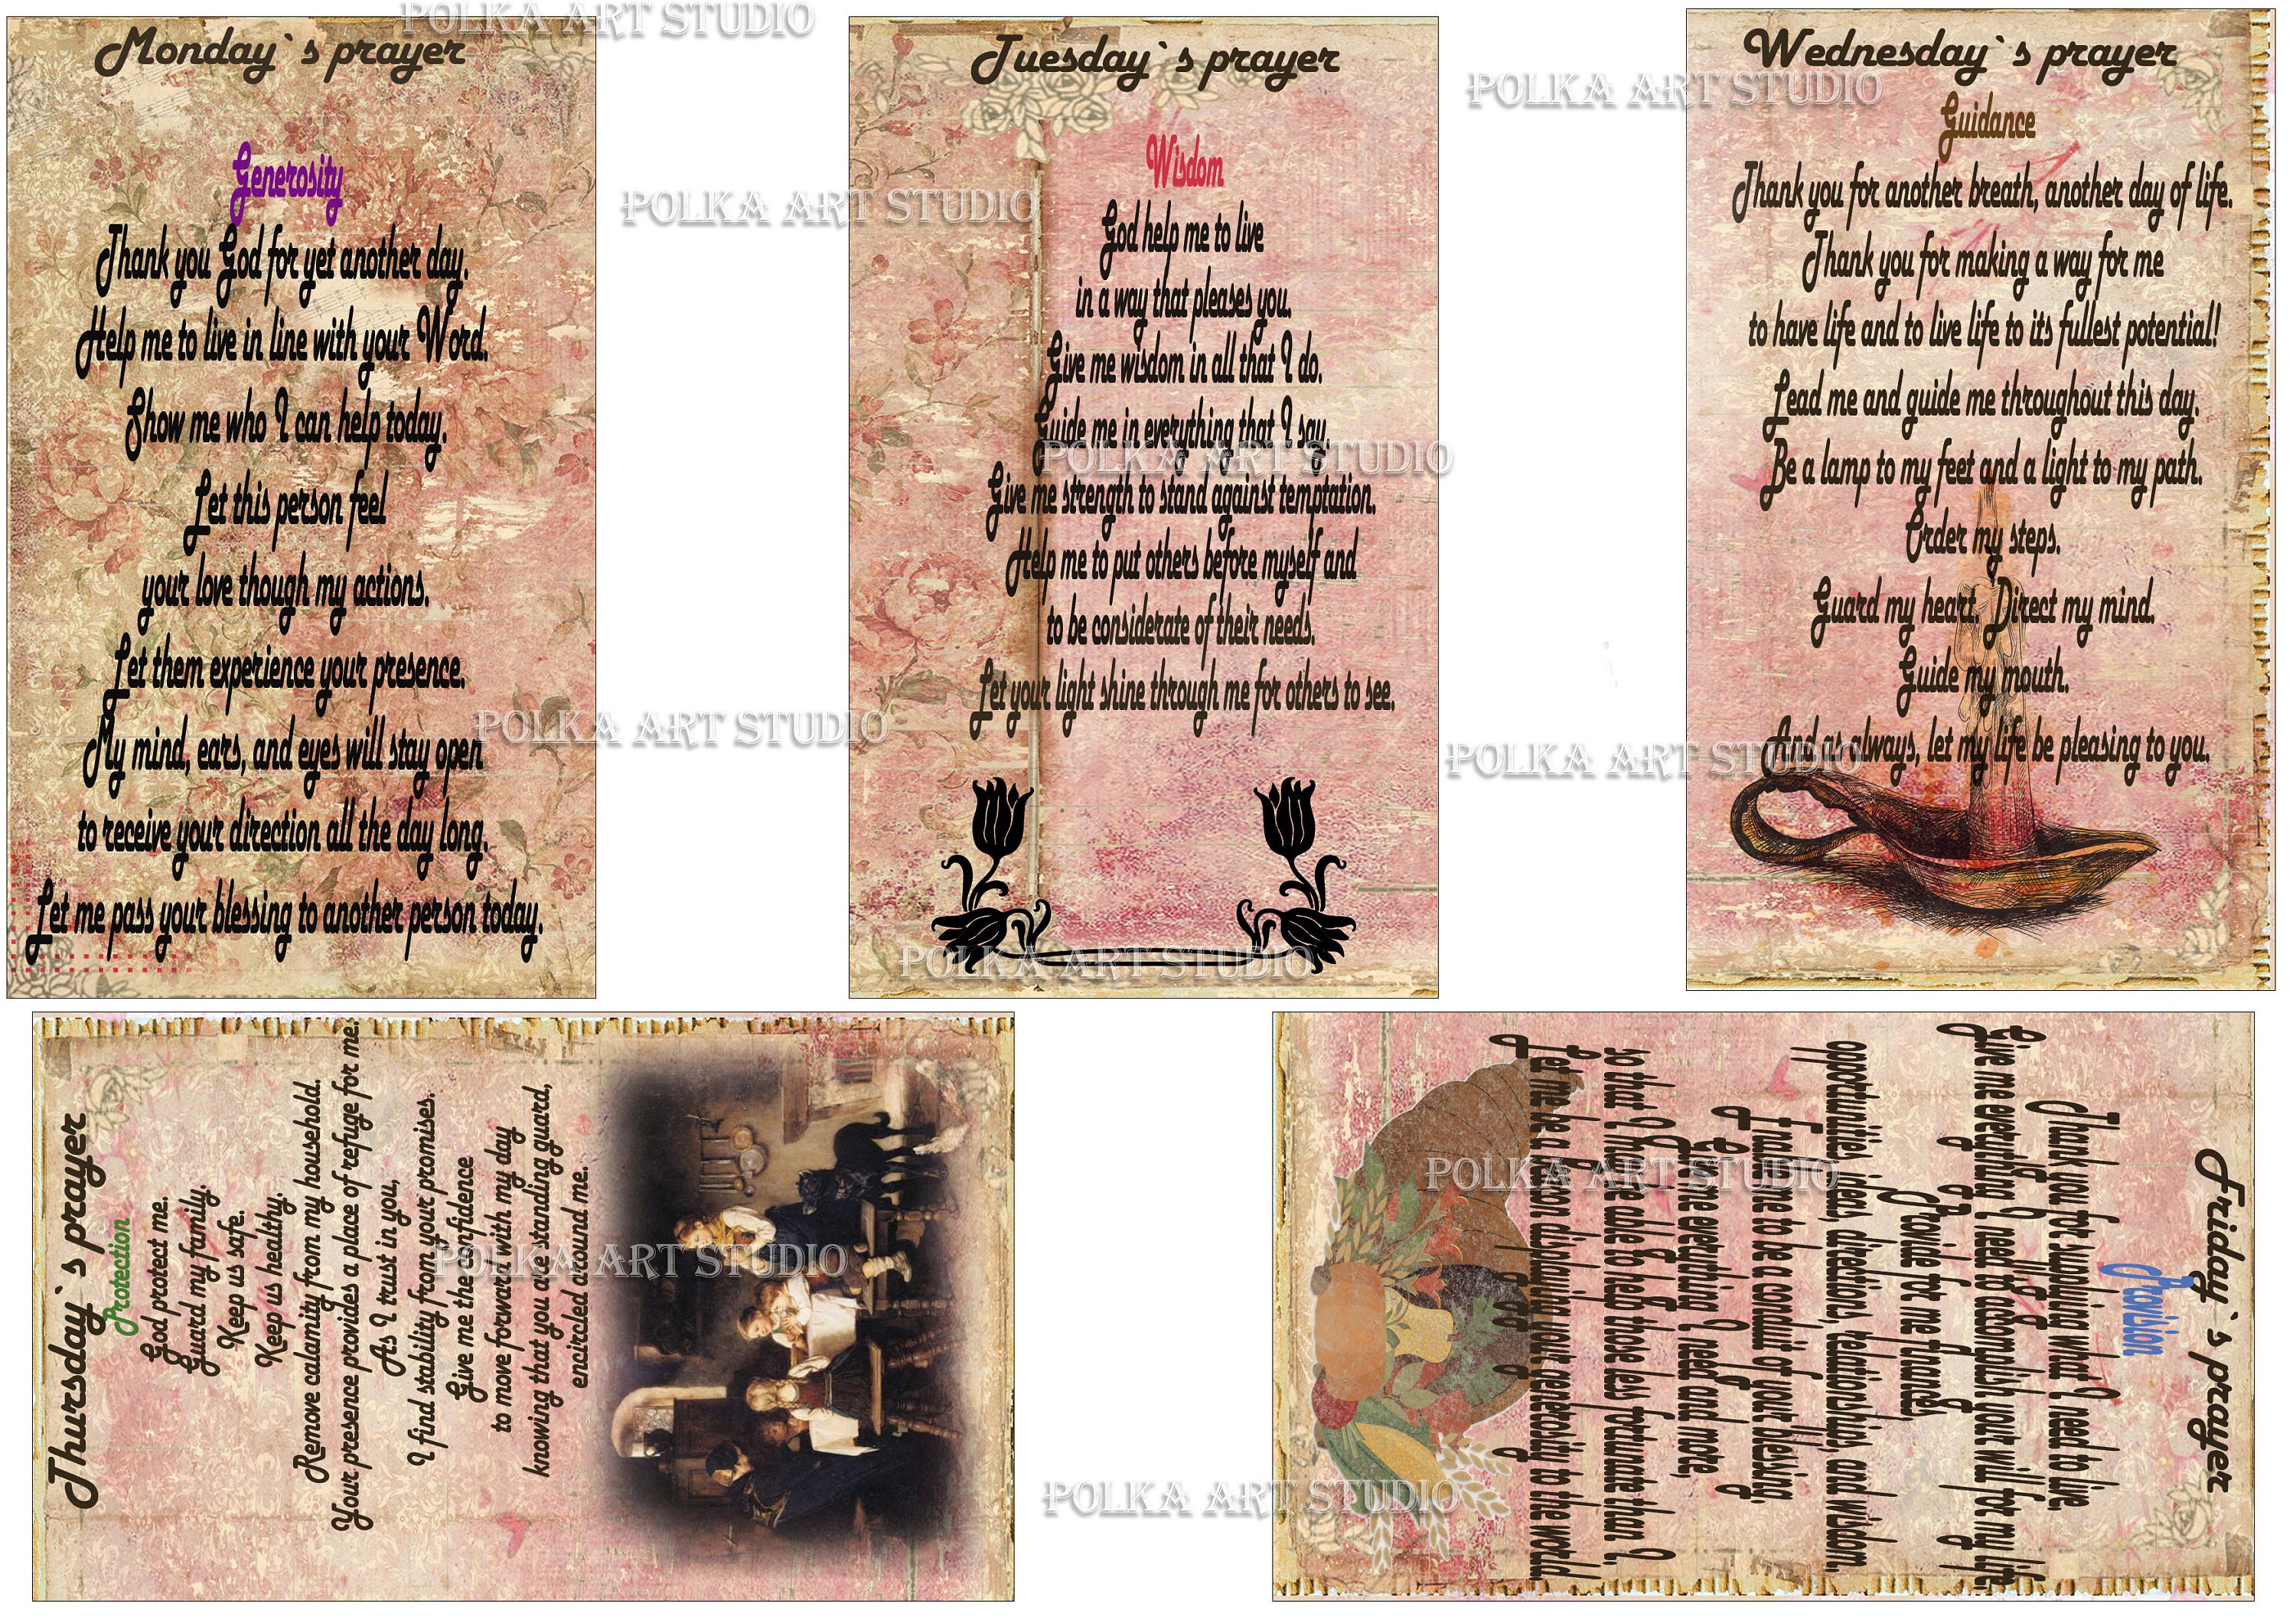 POLKA ART STUDIO
Monday`s prayer
Generosity
Thank you God for yet another day.
Help me to live in line with your Word.
Show me who I can help today.
Let this person feel
your love though my actions.
Let them experience your presence.
My mind, ears, and eyes will stay open
to receive your direction all the day long.
Let me pass your blessing to another person today.
POLKA ART STUDIO
POLKA ART STUDIO
Tuesday`s prayer
Wisdom
God help me to live
in a way that pleases you.
Give me wisdom in all that I do.
Guide me in everything that I say.
Give me strength to stand against temptation.
Help me to put others before myself and
to be considerate of their needs.
Let your light shine through me for others to see.
POLKA ART STUDIO
POLKA ART STUDIO
Wednesday`s prayer
POLKA ART STUDIO
Guidance
Thank you for another breath, another day of life.
Thank you for making a way for me
to have life and to live life to its fullest potential!
Lead me and guide me throughout this day.
Be a lamp to my feet and a light to my path.
Order my steps.
Guard my heart. Direct my mind.
Guide my mouth.
And as always, let my life be pleasing to you.
POLKA ART STUDIO
Thursday`s prayer
Protection
God protect me.
Guard my family.
Keep us safe.
Keep us healthy.
Remove calamity from my household.
Your presence provides a place of refuge for me.
As I trust in you,
I find stability from your promises.
Give me the confidence
to move forward with my day
knowing that you are standing guard,
encircled around me.
POLKA ART STUDIO
Friday`s prayer
Provision
Thank you for supplying what I need to live.
Give me everything I need to accomplish your will for my life.
Provide for me finances,
opportunities, ideas, directions, relationships, and wisdom.
Allow me to be a conduit of your blessing.
Give me everything I need and more,
so that I may be able to help those less fortunate than I.
Let me be a beacon displaying your generosity to the world.
POLKA ART STUDIO
POLKA ART STUDIO